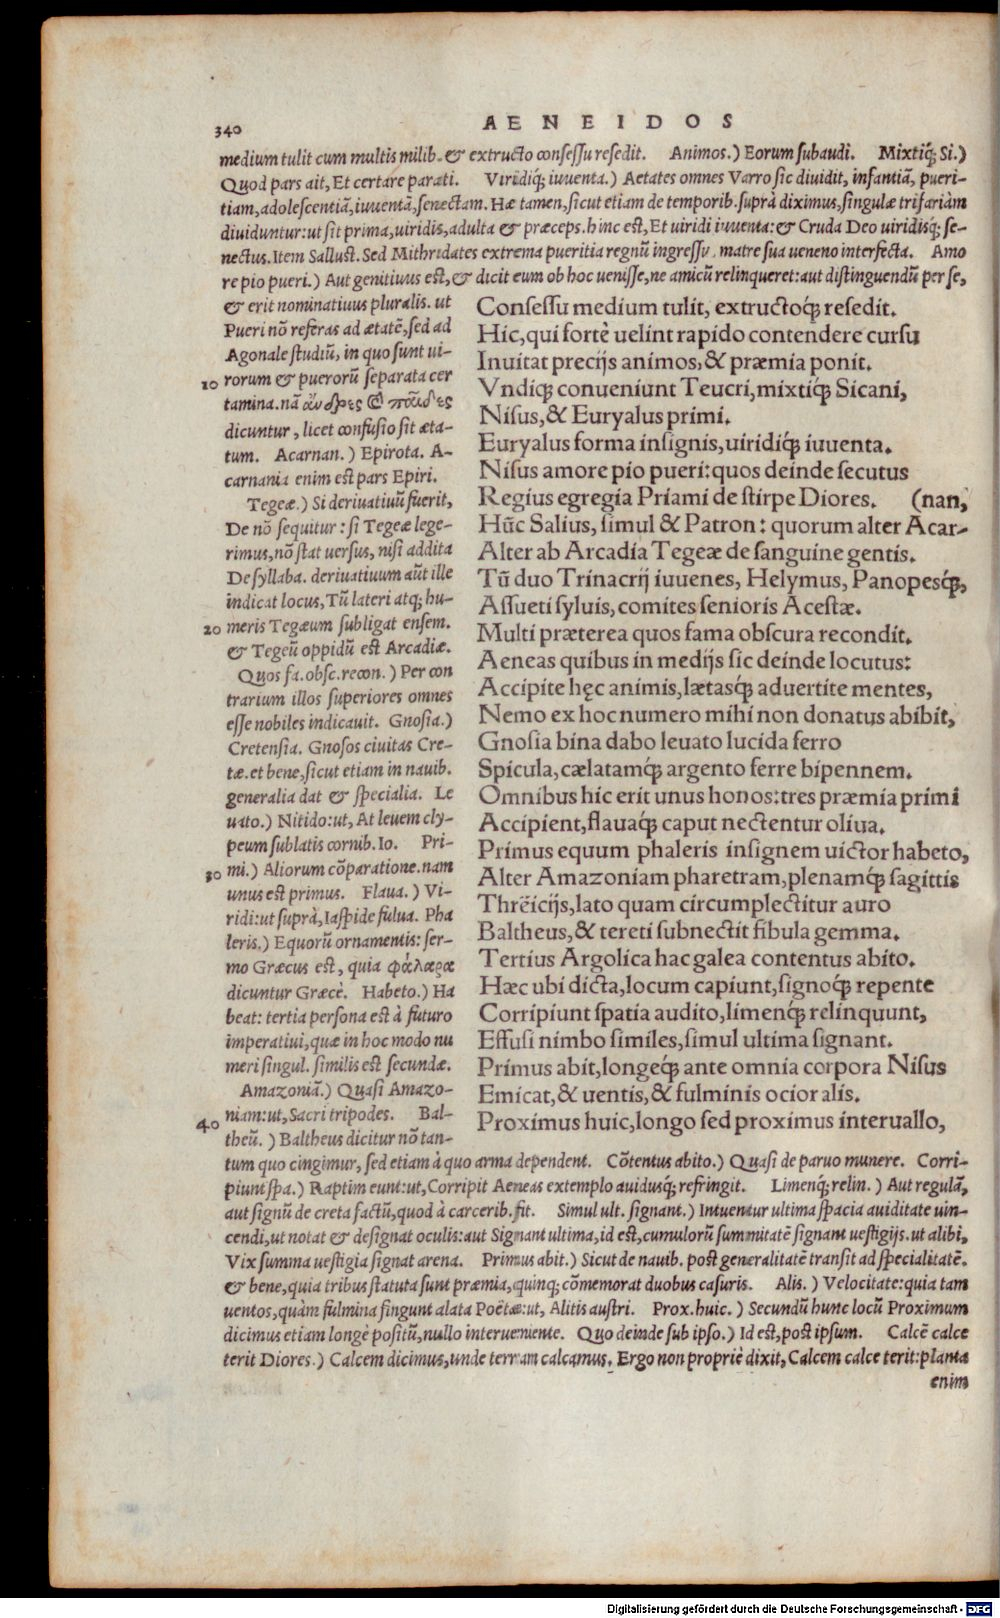 340
AENEIDOS
medium tulit cum multis milib. & extructo consessu resedit. Animos.) Eorum subaudi. Mixtiq́; Si.)
Quod pars ait, Et certare parati. Viridiq́; iuuenta.) Aetates omnes Varro sic diuidit, infantiã, pueri-
tiam, adolescentiã, iuuentã, senectam. Hæ tamen, sicut etiam de temporib. suprà diximus, singulæ trifariàm
diuiduntur: ut sit prima, uiridis, adulta & præceps. hinc est, Et uiridi iuuenta: & Cruda Deo uiridisq́; se-
nectus. Item Sallust. Sed Mithridates extrema pueritia regnũ ingressu, matre sua ueneno interfecta. Amo
re pio pueri.) Aut genitiuus est, & dicit eum ob hoc uenisse, ne amicũ relinqueret: aut distinguendũ per se,
& erit nominatiuus pluralis. ut
Pueri nõ referas ad ætatẽ, sed ad
Agonale studiũ, in quo sunt ui-
10 rorum & puerorũ separata cer
tamina. nã ἄνδρες & παῖδες
dicuntur, licet confusio sit æta-
tum. Acarnan.) Epirota. A-
carnania enim est pars Epiri.
Tegeæ.) Si deriuatiuũ fuerit,
De nõ sequitur: si Tegeæ lege-
rimus, nõ stat uersus, nisi addita
De syllaba. deriuatiuum aũt ille
indicat locus, Tũ lateri atq; hu-
20 meris Tegæum subligat ensem.
& Tegeũ oppidũ est Arcadiæ.
Quos fa. obsc. recon.) Per con
trarium illos superiores omnes
esse nobiles indicauit. Gnosia.)
Cretensia. Gnosos ciuitas Cre-
tæ. et bene, sicut etiam in nauib.
generalia dat & specialia. Le
uato.) Nitido: ut, At leuem cly-
peum sublatis cornib. Io. Pri-
30 mi.) Aliorum cõparatione. nam
unus est primus. Flaua.) Vi-
ridi: ut suprà, Iaspide fulua. Pha
leris.) Equorũ ornamentis: ser-
mo Græcus est, quia φάλαρα
dicuntur Græcè. Habeto.) Ha
beat: tertia persona est à futuro
imperatiui, quæ in hoc modo nu
meri singul. similis est secundæ.
Amazoniã.) Quasi Amazo-
40 niam: ut, Sacri tripodes. Bal-
theũ.) Baltheus dicitur nõ tan-
Consessu medium tulit, extructoq́; resedit.
Hic, qui fortè uelint rapido contendere cursu
Inuitat precijs animos, & præmia ponit.
Vndiq; conueniunt Teucri, mixtiq́; Sicani,
Nisus, & Euryalus primi.
Euryalus forma insignis, uiridiq́; iuuenta.
Nisus amore pio pueri: quos deinde secutus
Regius egregia Priami de stirpe Diores. (nan,
Hũc Salius, simul & Patron: quorum alter Acar-
Alter ab Arcadia Tegeæ de sanguine gentis.
Tũ duo Trinacrij iuuenes, Helymus, Panopesq́;,
Assueti syluis, comites senioris Acestæ.
Multi præterea quos fama obscura recondit.
Aeneas quibus in medijs sic deinde locutus:
Accipite hęc animis, lætasq́; aduertite mentes,
Nemo ex hoc numero mihi non donatus abibit,
Gnosia bina dabo leuato lucida ferro
Spicula, cælatamq́; argento ferre bipennem.
Omnibus hic erit unus honos: tres præmia primi
Accipient, flauaq́; caput nectentur oliua.
Primus equum phaleris insignem uictor habeto,
Alter Amazoniam pharetram, plenamq́; sagittis
Threïcijs, lato quam circumplectitur auro
Baltheus, & tereti subnectit fibula gemma.
Tertius Argolica hac galea contentus abito.
Hæc ubi dicta, locum capiunt, signoq́; repente
Corripiunt spatia audito, limenq́; relinquunt,
Effusi nimbo similes, simul ultima signant.
Primus abit, longeq́; ante omnia corpora Nisus
Emicat, & uentis, & fulminis ocior alis.
Proximus huic, longo sed proximus interuallo,
tum quo cingimur, sed etiam à quo arma dependent. Cõtentus abito.) Quasi de paruo munere. Corri-
piunt spa.) Raptim eunt: ut, Corripit Aeneas extemplo auidusq́; refringit. Limenq́; relin.) Aut regulã,
aut signũ de creta factũ, quod à carcerib. fit. Simul ult. signant.) Intuentur ultima spacia auiditate uin-
cendi, ut notat & designat oculis: aut Signant ultima, id est, cumulorũ summitatẽ signant uestigijs. ut alibi,
Vix summa uestigia signat arena. Primus abit.) Sicut de nauib. post generalitatẽ transit ad specialitatẽ.
& bene, quia tribus statuta sunt præmia, quinq; cõmemorat duobus casuris. Alis.) Velocitate: quia tam
uentos, quàm fulmina fingunt alata Poëtæ: ut, Alitis austri. Prox. huic.) Secundũ hunc locũ Proximum
dicimus etiam longè positũ, nullo interueniente. Quo deinde sub ipso.) Id est, post ipsum. Calcẽ calce
terit Diores.) Calcem dicimus, unde terram calcamus. Ergo non propriè dixit, Calcem calce terit: planta
enim
Digitalisierung gefördert durch die Deutsche Forschungsgemeinschaft - DFG